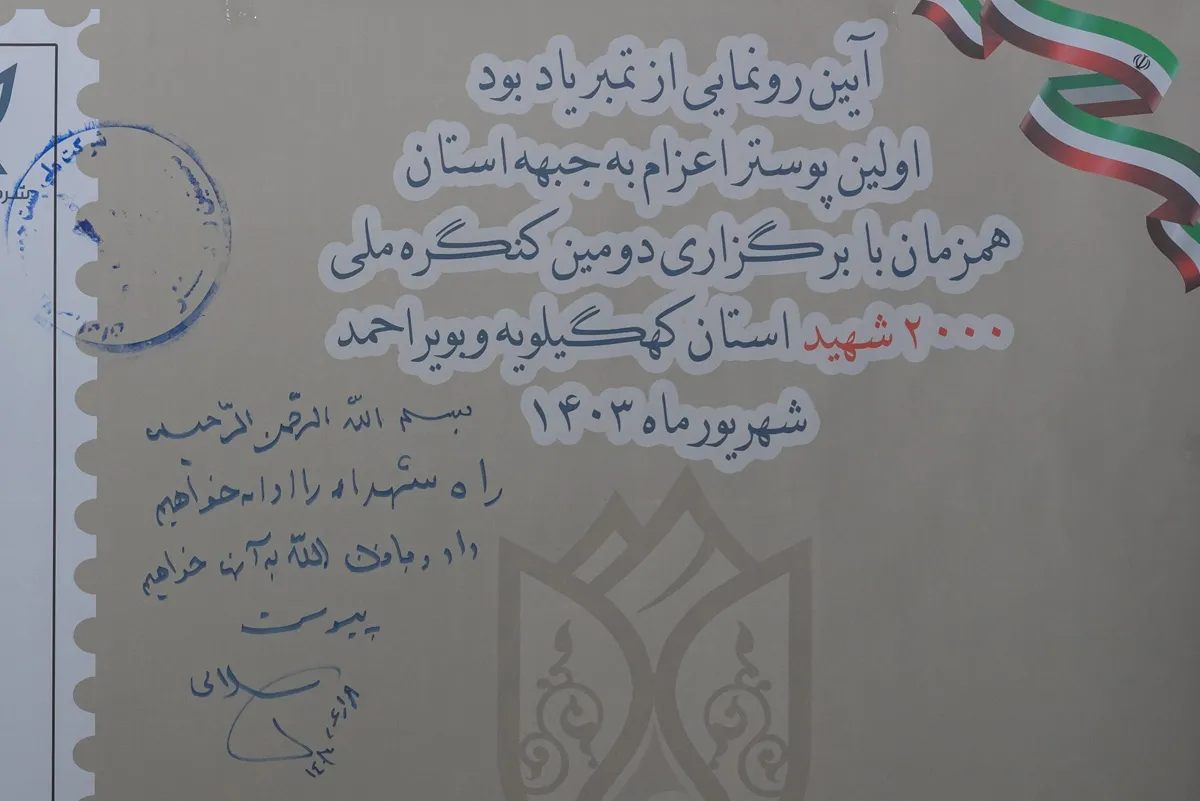 آیین رونمایی از تمبر یاد بود
اولین پوستر اعزام به جبهه استان
همزمان با برگزاری دومین کنگره ملی
۲۰۰۰ شهید استان کهگیلویه و بویراحمد
شهریور ماه ۱۴۰۳
بسم الله الرّحمن الرّحیم
راه شهداء را ادامه خواهیم
داد و باذن اللّه به آنها خواهیم
پیوست
شرکت ملی پست